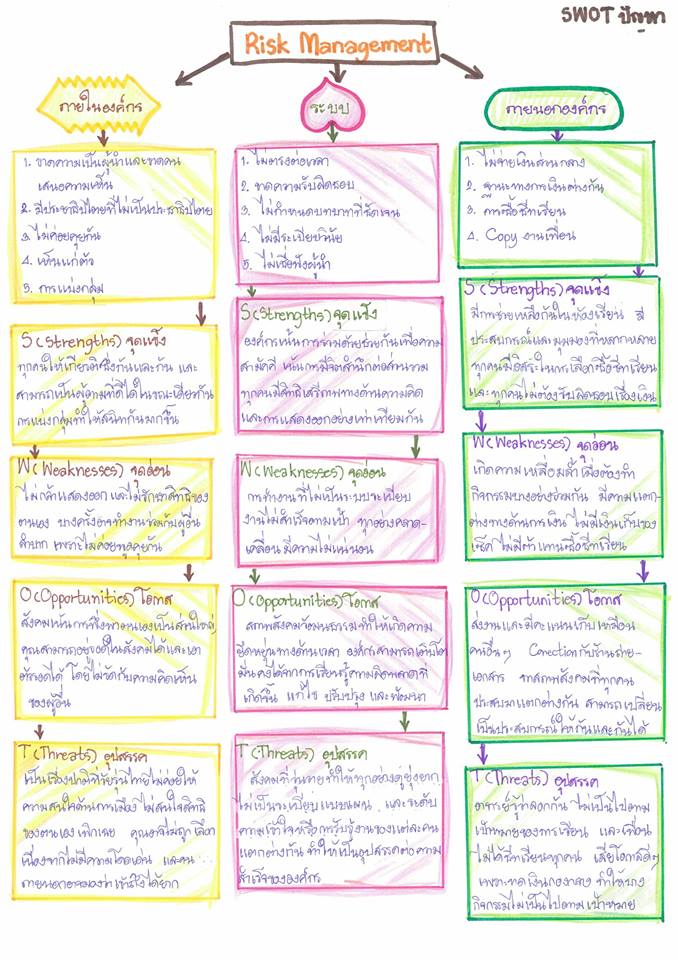 SWOT ปัญหา
Risk Management
ภายในองค์กร
1. ขาดความเป็นผู้นำและขาดคน
เสนอความเห็น
2. มีประชาธิปไตยที่ไม่เป็นประชาธิปไตย
3. ไม่ค่อยคุยกัน
4. เห็นแก่ตัว
5. การแบ่งกลุ่ม
S (Strengths) จุดแข็ง
ทุกคนให้เกียรติซึ่งกันและกัน และ
สามารถเป็นผู้ตามที่ดีได้ในขณะเดียวกัน
การแบ่งกลุ่มทำให้สนิทกันมากขึ้น
W (Weaknesses) จุดอ่อน
ไม่กล้าแสดงออก และไม่รักษาสิทธิของ
ตนเอง บางครั้งอาจทำงานร่วมกับผู้อื่น
ลำบาก เพราะไม่ค่อยพูดคุยกัน
O (Opportunities) โอกาส
สังคมเน้นการพึ่งพาตนเองเป็นส่วนใหญ่
คุณสามารถอยู่รอดในสังคมได้และเอา
ตัวรอดได้ โดยไม่ยึดกับความคิดเห็น
ของผู้อื่น
T (Threats) อุปสรรค
เป็นเรื่องปกติที่วัยรุ่นไทยไม่ค่อยให้
ความสนใจด้านการเมือง ไม่สนใจสิทธิ
ของตนเอง เพิกเฉย คุณอาจไม่ถูกเลือก
เนื่องจากไม่มีความโดดเด่น และคน
ภายนอกอาจมองว่าเข้าถึงได้ยาก
ระบบ
1. ไม่ตรงต่อเวลา
2. ขาดความรับผิดชอบ
3. ไม่กำหนดบทบาทที่ชัดเจน
4. ไม่มีระเบียบวินัย
5. ไม่เชื่อฟังผู้นำ
S (Strengths) จุดแข็ง
องค์กรเน้นการรวมด้วยช่วยกันเพื่อความ
สามัคคี เน้นการมีจิตสำนึกต่อส่วนรวม
ทุกคนมีสิทธิเสรีภาพทางด้านความคิด
และการแสดงออกอย่างเท่าเทียมกัน
W (Weaknesses) จุดอ่อน
การทำงานที่ไม่เป็นระบบระเบียบ
งานไม่สำเร็จตามเป้า ทุกอย่างคลาด-
เคลื่อน มีความไม่แน่นอน
O (Opportunities) โอกาส
สภาพสังคมวัฒนธรรมทำให้เกิดความ
ยืดหยุ่นทางด้านเวลา องค์กรสามารถเติบโต
มั่นคงได้จากการเรียนรู้ความผิดพลาดที่
เกิดขึ้น แก้ไข ปรับปรุง และพัฒนา
T (Threats) อุปสรรค
สังคมที่วุ่นวายทำให้ทุกอย่างดูยุ่งยาก
ไม่เป็นระเบียบแบบแผน และระดับ
ความเข้าใจหรือการรับรู้งานของแต่ละคน
แตกต่างกัน ทำให้เป็นอุปสรรคต่อความ
สำเร็จขององค์กร
ภายนอกองค์กร
1. ไม่จ่ายเงินส่วนกลาง
2. ฐานะทางการเงินต่างกัน
3. การซื้อชีทเรียน
4. Copy งานเพื่อน
S (Strengths) จุดแข็ง
มีการช่วยเหลือกันในห้องเรียน มี
ประสบการณ์และมุมมองที่หลากหลาย
ทุกคนมีอิสระในการเลือกซื้อชีทเรียน
และทุกคนไม่ต้องรับผิดชอบเรื่องเงิน
W (Weaknesses) จุดอ่อน
เกิดความเหลื่อมล้ำ เมื่อต้องทำ
กิจกรรมบางอย่างร่วมกัน มีความแตก-
ต่างทางด้านการเงิน ไม่มีเงินเก็บของ
เซ็ค ไม่มีตัวแทนซื้อชีทเรียน
O (Opportunities) โอกาส
ส่งงานและมีคะแนนเก็บเหมือน
คนอื่นๆ Conection กับร้านถ่าย-
เอกสาร จากสภาพสังคมที่ทุกคน
ประสบมาแตกต่างกัน สามารถเปลี่ยน
เป็นประสบการณ์ให้กันและกันได้
T (Threats) อุปสรรค
อาจารย์รู้ว่าลอกกัน ไม่เป็นไปตาม
เป้าหมายของการเรียน และเพื่อน
ไม่ได้ชีทเรียนทุกคน เสียโอกาสดีๆ
เพราะขาดเงินกองกลาง ทำให้บาง
กิจกรรมไม่เป็นไปตามเป้าหมาย